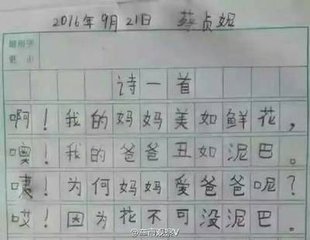 2016年9月21日 蔡贞妮
诗一首
啊！我的妈妈美如鲜花，
噢！我的爸爸丑如泥巴。
咦！为何妈妈爱爸爸呢？
哎！因为花不可没泥巴。